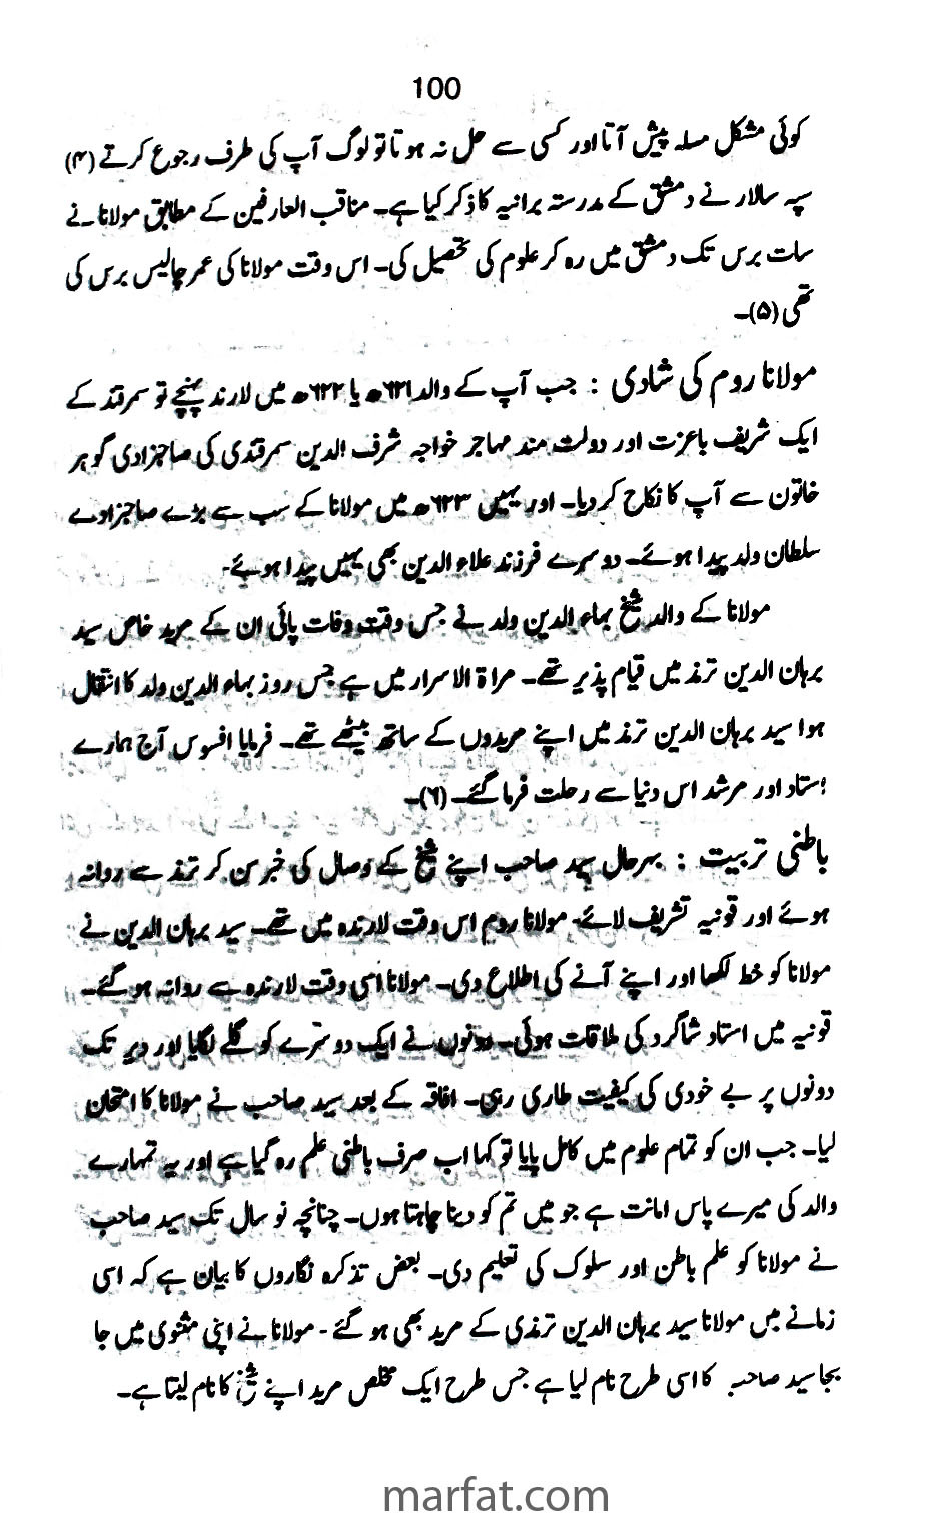 100
کوئی مشکل مسلہ پیش آتا اور کسی سے حل نہ ہوتا تو لوگ آپ کی طرف رجوع کرتے (۴)
سپہ سالار نے دمشق کے مدرستہ برانیہ کا ذکر کیا ہے۔ مناقب العارفین کے مطابق مولانا نے
سات برس تک دمشق میں رہ کر علوم کی تحصیل کی۔ اس وقت مولانا کی عمر چالیس برس کی
تھی (۵)۔
مولانا روم کی شادی : جب آپ کے والد ۶۲۱ھ یا ۶۲۲ھ میں لارند پہنچے تو سمرقند کے
ایک شریف باعزت اور دولت مند مہاجر خواجہ شرف الدین سمرقندی کی صاحبزادی گوہر
خاتون سے آپ کا نکاح کر دیا۔ اور یہیں ۶۲۳ھ میں مولانا کے سب سے بڑے صاحبزادے
سلطان ولد پیدا ہوئے۔ دوسرے فرزند علاء الدین بھی یہیں پیدا ہوئے۔
مولانا کے والد شیخ بہاء الدین ولد نے جس وقت وفات پائی ان کے مرید خاص سید
برہان الدین ترمذ میں قیام پذیر تھے۔ مراۃ الاسرار میں ہے جس روز بہاء الدین ولد کا انتقال
ہوا سید برہان الدین ترمذ میں اپنے مریدوں کے ساتھ بیٹھے تھے۔ فرمایا افسوس آج ہمارے
استاد اور مرشد اس دنیا سے رحلت فرما گئے۔ (۶)۔
باطنی تربیت : بہرحال سید صاحب اپنے شیخ کے وصال کی خبر سن کر ترمذ سے روانہ
ہوئے اور قونیہ تشریف لائے۔ مولانا روم اس وقت لارندہ میں تھے۔ سید برہان الدین نے
مولانا کو خط لکھا اور اپنے آنے کی اطلاع دی۔ مولانا اسی وقت لارندہ سے روانہ ہو گئے۔
قونیہ میں استاد شاگرد کی ملاقات ہوئی۔ دونوں نے ایک دوسرے کو گلے لگایا اور دیر تک
دونوں پر بے خودی کی کیفیت طاری رہی۔ افاقہ کے بعد سید صاحب نے مولانا کا امتحان
لیا۔ جب ان کو تمام علوم میں کامل پایا تو کہا اب صرف باطنی علم رہ گیا ہے اور یہ تمہارے
والد کی میرے پاس امانت ہے جو میں تم کو دینا چاہتا ہوں۔ چنانچہ نو سال تک سید صاحب
نے مولانا کو علم باطن اور سلوک کی تعلیم دی۔ بعض تذکرہ نگاروں کا بیان ہے کہ اسی
زمانے میں مولانا سید برہان الدین ترمذی کے مرید بھی ہو گئے۔ مولانا نے اپنی مثنوی میں جا
بجا سید صاحب کا اسی طرح نام لیا ہے جس طرح ایک مخلص مرید اپنے شیخ کا نام لیتا ہے۔
marfat.com